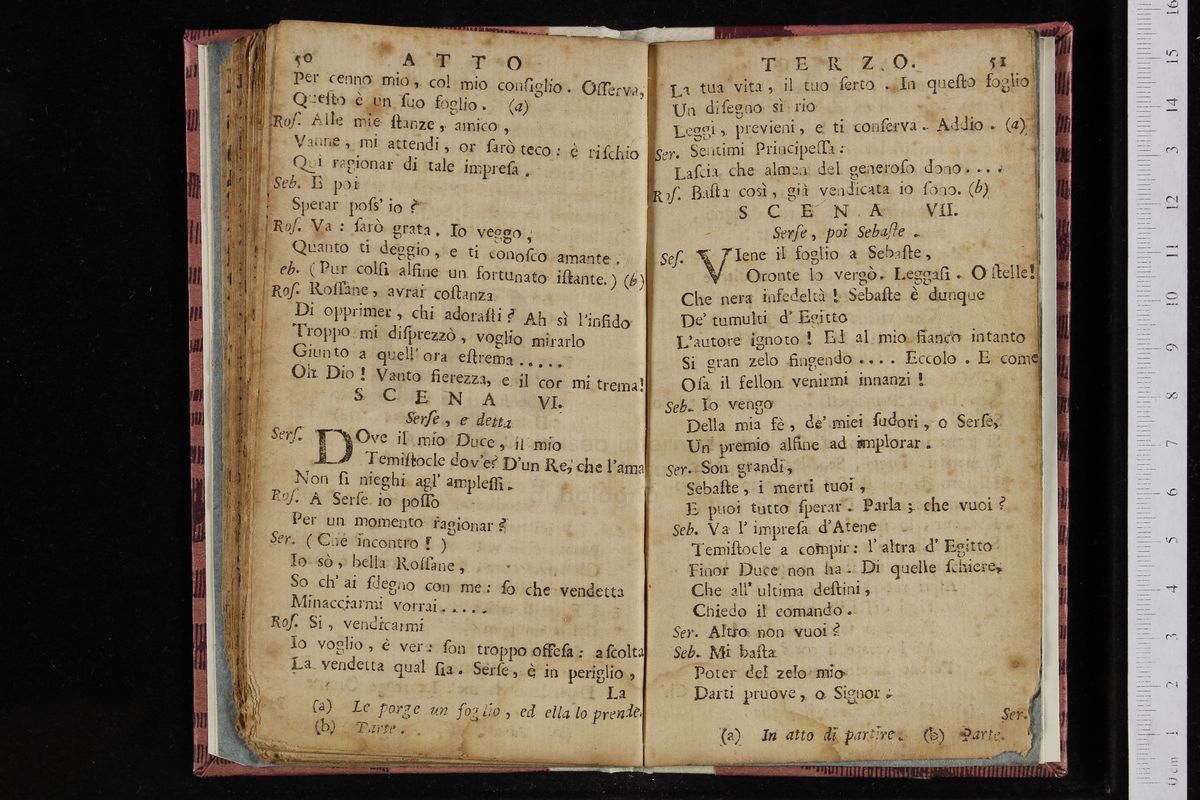 50 ATTO
Per cenno mio, col mio consiglio. Osserva,
Questo è un suo foglio. (a)
Ros. Alle mie stanze, amico,
Vanne, mi attendi, or sarò teco: è rischio
Qui ragionar di tale impresa.
Seb. E poi
Sperar poss' io?
Ros. Va: sarò grata. Io veggo,
Quanto ti deggio, e ti conosco amante.
eb. (Pur colsi alfine un fortunato istante.) (b)
Ros. Rossane, avrai costanza
Di opprimer, chi adorasti? Ah sì l'infido
Troppo mi disprezzò, voglio mirarlo
Giunto a quell' ora estrema.....
Oh Dio! Vanto fierezza, e il cor mi trema!
SCENA VI.
Serse, e detta
Sers. DOve il mio Duce, il mio
Temistocle dov'è? D'un Re, che l'ama
Non si nieghi agl' amplessi.
Ros. A Serse io posso
Per un momento ragionar?
Ser. (Che incontro!)
Io sò, bella Rossane,
So ch' ai sdegno con me: so che vendetta
Minacciarmi vorrai.....
Ros. Si, vendicarmi
Io voglio, è ver: son troppo offesa: ascolta
La vendetta qual sia. Serse, è in periglio,
La
(a) Le porge un foglio, ed ella lo prende.
(b) Parte.
TERZO. 51
La tua vita, il tuo serto. In questo foglio
Un disegno sì rio
Leggi, previeni, e ti conserva. Addio. (a)
Ser. Sentimi Principessa:
Lascia che almen del generoso dono....
Ros. Basta così, già vendicata io sono. (b)
SCENA VII.
Serse, poi Sebaste.
Ses. VIene il foglio a Sebaste,
Oronte lo vergò. Leggasi. O stelle!
Che nera infedeltà! Sebaste è dunque
De' tumulti d' Egitto
L'autore ignoto! Ed al mio fianco intanto
Si gran zelo fingendo.... Eccolo. E come
Osa il fellon venirmi innanzi!
Seb. Io vengo
Della mia fè, de' miei sudori, o Serse,
Un premio alfine ad implorar.
Ser. Son grandi,
Sebaste, i merti tuoi,
E puoi tutto sperar. Parla; che vuoi?
Seb. Va l' impresa d'Atene
Temistocle a compir: l' altra d' Egitto
Finor Duce non ha. Di quelle schiere,
Che all' ultima destini,
Chiedo il comando.
Ser. Altro non vuoi?
Seb. Mi basta
Poter del zelo mio
Darti pruove, o Signor.
Ser.
(a) In atto di partire. (b) Parte.